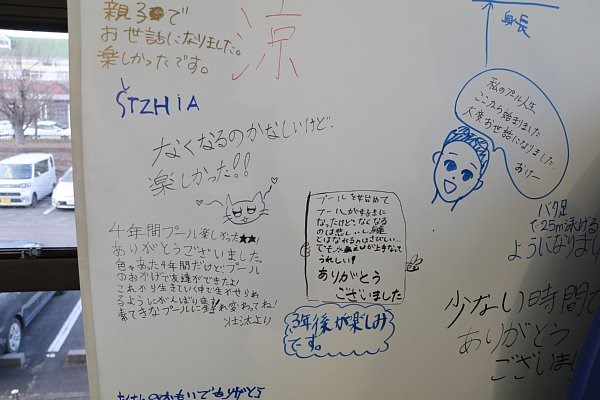 親子で
お世話になりました。
楽しかったです。
涼
STZHIA
なくなるのかなしいけど、
楽しかった!!
4年間プール楽しかった★★!
ありがとうございました。
色々あった4年間だけど、プール
のおかげで友達ができたよ!
これから生きていく中で生かせられ
るようにがんばります!
素てきなプールに生まれ変わってね!
プールを始めて
プールが好きに
なったけど、なくなる
のは悲しいし、
とはなれるのはさびしい…
でも水泳が上手になって
うれしい!
ありがとう
ございました
3年後が楽しみ
です。
身長
私のプール人生
ここから始まりました
大変お世話になりました
バタ足
で25m泳げる
ようになりまし
少ない時間で
ありがとう
ございまし